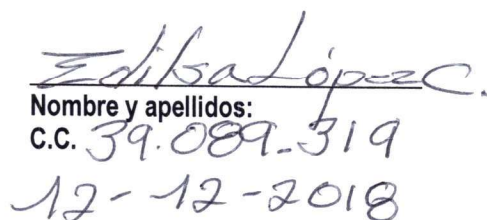 Edilsa López C.
Nombre y apellidos:
C.C. 39.089.319
12-12-2018